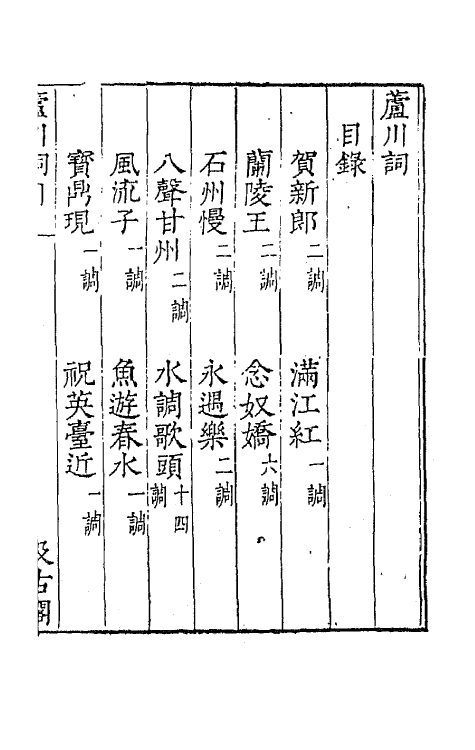 蘆川詞
目錄
賀新郎二調 滿江紅一調
蘭陵王二調 念奴嬌六調
石州慢二調 永遇樂二調
八聲甘州二調 水調歌頭十四調
風流子一調 魚遊春水一調
寶鼎現一調 祝英臺近一調
蘆川詞目 一 汲古閣